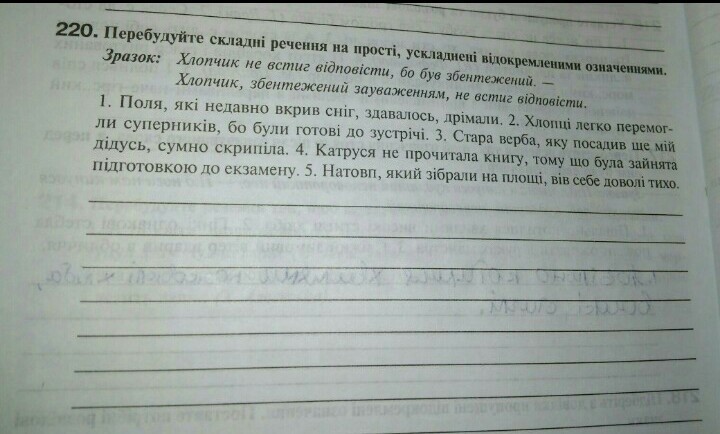 220. Перебудуйте складні речення на прості, ускладнені відокремленими означеннями.
Зразок: Хлопчик не встиг відповісти, бо був збентежений. —
Хлопчик, збентежений зауваженням, не встиг відповісти.
1. Поля, які недавно вкрив сніг, здавалось, дрімали. 2. Хлопці легко перемог-
ли суперників, бо були готові до зустрічі. 3. Стара верба, яку посадив ще мій
дідусь, сумно скрипіла. 4. Катруся не прочитала книгу, тому що була зайнята
підготовкою до екзамену. 5. Натовп, який зібрали на площі, вів себе доволі тихо.